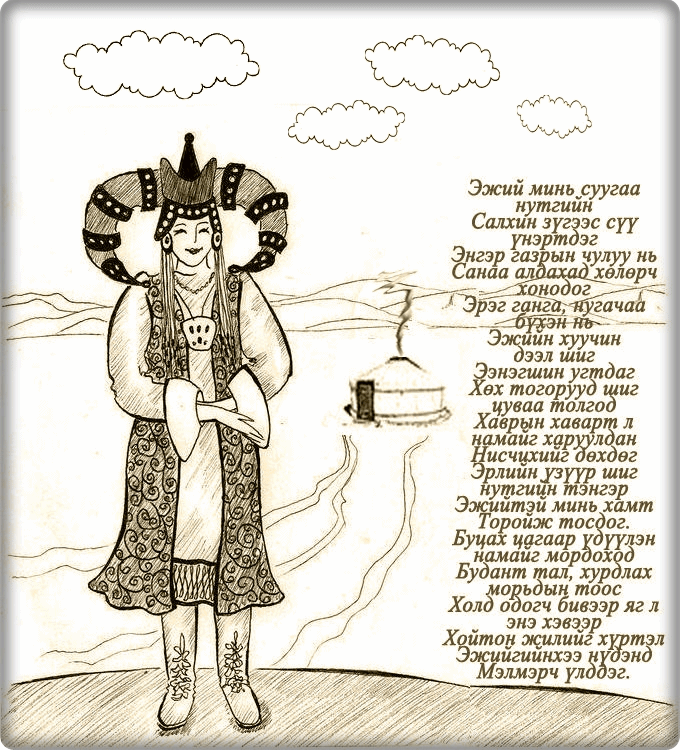 Эжий минь суугаа
нутгийн
Салхин зүгээс сүү
үнэртдэг
Энгэр газрын чулуу нь
Санаа алдахад хөлөрч
хонодог
Эрэг ганга, нугачаа
бүхэн нь
Эжийн хуучин
дээл шиг
Ээнэгшин угтдаг
Хөх тогорууд шиг
цуваа толгод
Хаврын хаварт л
намайг харуулдан
Нисчихийг дөхдөг
Эрлийн үзүүр шиг
нутгийн тэнгэр
Эжийтэй минь хамт
Торойж тосдог.
Буцах цагаар үдүүлэн
намайг мордоход
Будант тал, хурдлах
морьдын тоос
Холд одогч бивээр яг л
энэ хэвээр
Хойтон жилийг хүртэл
Эжийгийнхээ нүдэнд
Мэлмэрч үлддэг.